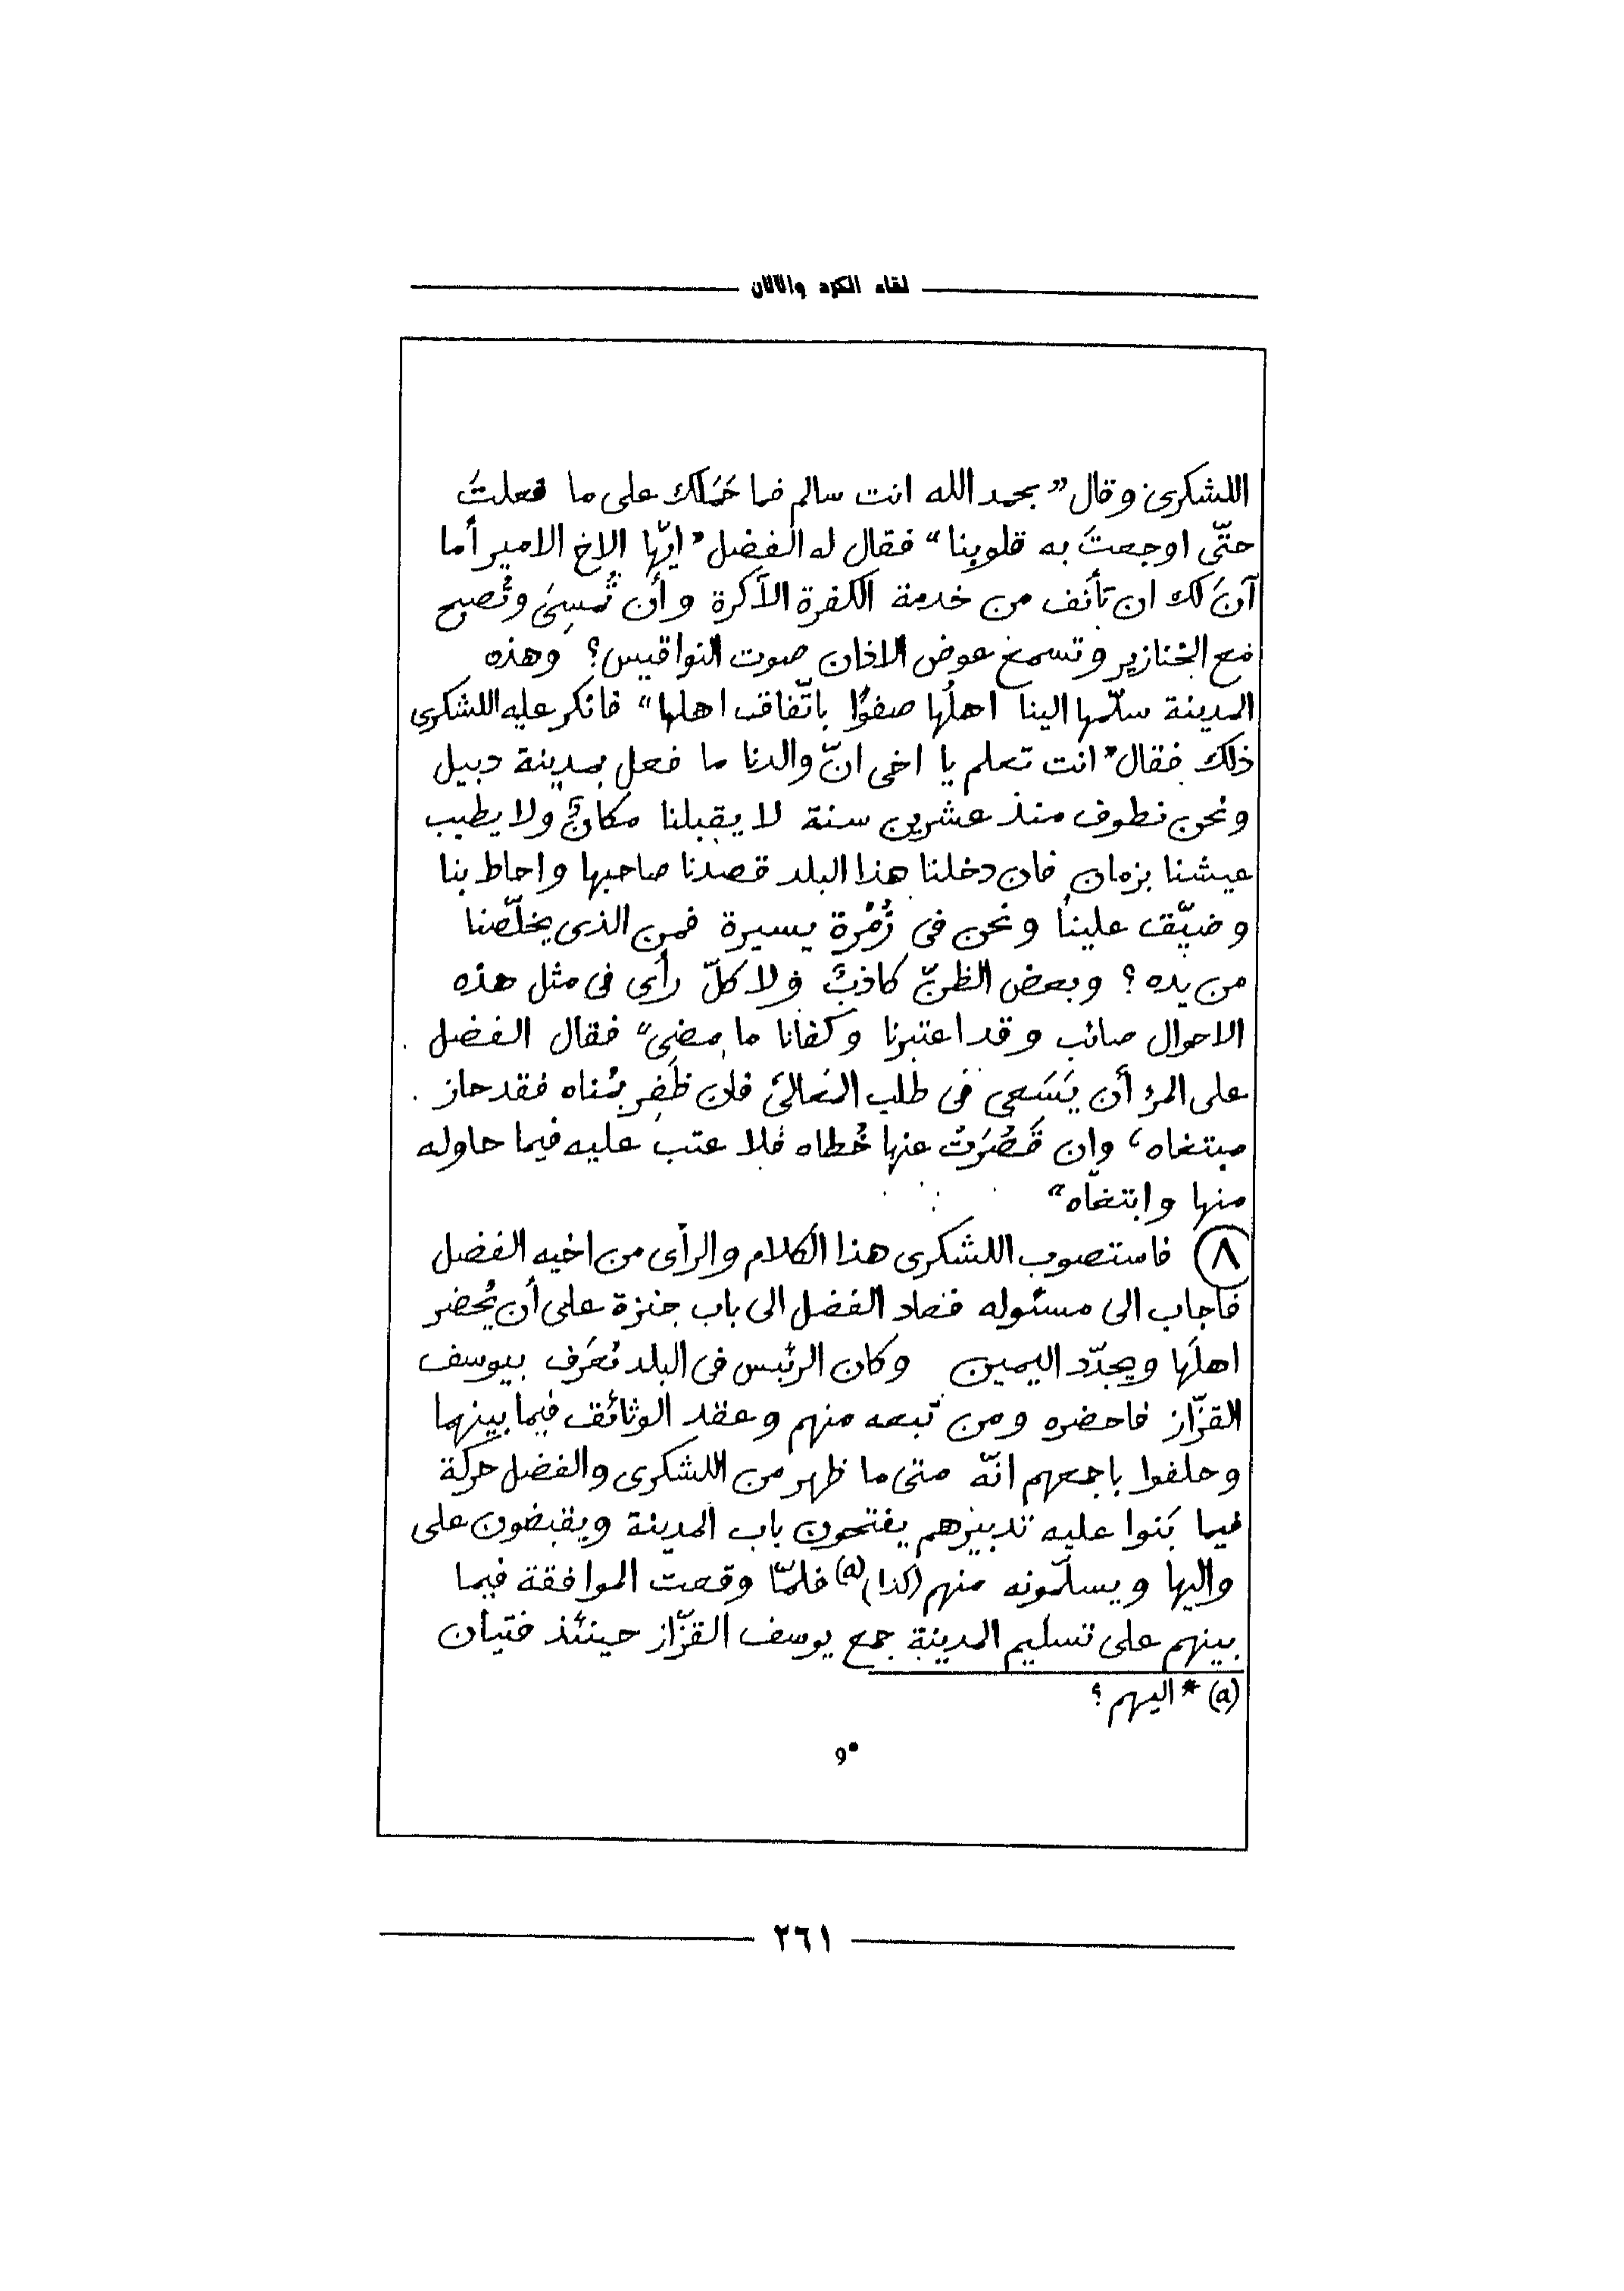 لقاء الكرد والآلان
اللشكرى وقال "بحمد الله انت سالم فما حَمَلك على ما فعلتَ
حتّى اوجعتَ به قلوبنا" فقال له الفضل "ايّها الاخ الامير أما
آنَ لك ان تأنف من خدمة الكفرة الأكرة وأن تُمسِىَ وتُصبح
مع الخنازير وتسمع عوض الاذان صوت النواقيس؟ وهذه
المدينة سلّمها الينا اهلُها صفوًا باتّفاق اهلها" فانكر عليه اللشكرى
ذلك فقال "انت تعلم يا اخى انّ والدنا ما فعل بمدينة دبيل
ونحن نطوف منذ عشرين سنة لا يقبلنا مكانٌ ولا يطيب
عيشنا بزمان فان دخلنا هذا البلد قصدنا صاحبها واحاط بنا
وضيّق علينا ونحن فى زُمْرة يسيرة فمن الذى يخلّصنا
من يده؟ وبعض الظنّ كاذبٌ ولا كلّ رأى فى مثل هذه
الاحوال صائب وقد اعتبرنا وكفانا ما مضى" فقال الفضل
على المرء أن يَسَعى فى طلب المَعالىَ فان ظَفِر بمُناه فقد حاز
مبتغاه، وان قَصُرَتْ عنها خُطاه فلا عتب عليه فيما حاوله
منها وابتغاه"
٨ فاستصوب اللشكرى هذا الكلام والرأى من اخيه الفضل
فاجاب الى مسئوله فعاد الفضل الى باب جنزة على أن يُحضر
اهلَها ويجدّد اليمين وكان الرئيس فى البلد تُعرَف بيوسف
القزّاز فاحضره ومن تبعه منهم وعقد الوثائق فيما بينهما
وحلفوا باجمعهم انّه متى ما ظهر من اللشكرى والفضل حركة
فيما بَنوا عليه تدبيرهم يفتحون باب المدينة ويقبضون على
واليها ويسلّمونه منهم (كذا) (a) فلمّا وقعت الموافقة فيما
بينهم على تسليم المدينة جمع يوسف القزّاز حينئذ فتيان
(a) * اليهم؟
و
٢٦١